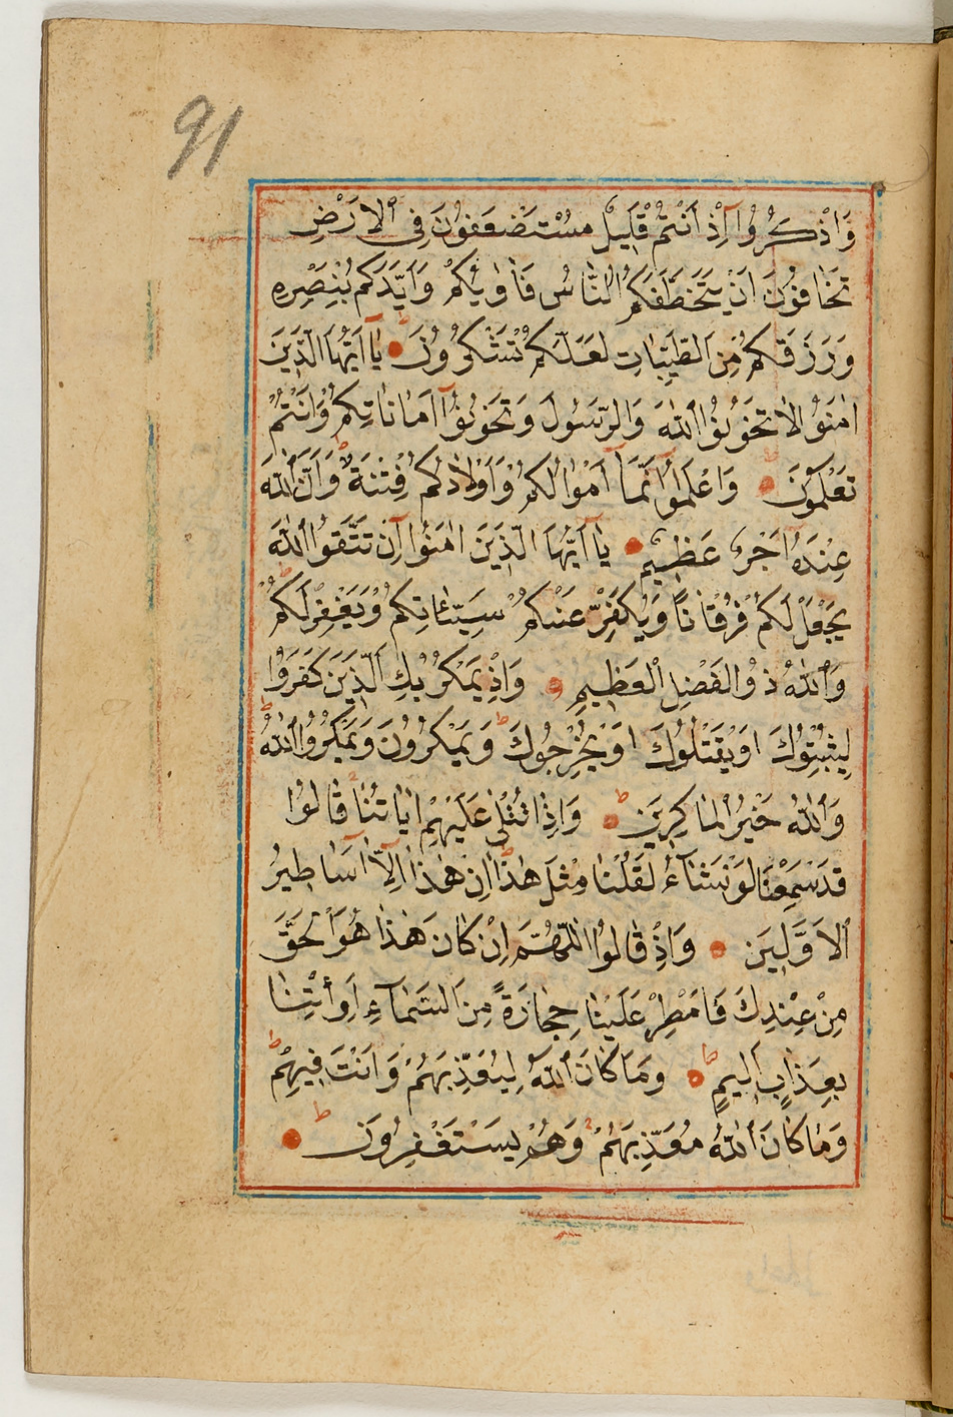 91
وَاذْكُرُوا إِذْ أَنْتُمْ قَلِيلٌ مُسْتَضْعَفُونَ فِي الْاَرْضِ
تَخَافُونَ اَنْ يَتَخَطَّفَكُمُ النَّاسُ فَاٰوٰيكُمْ وَاَيَّدَكُمْ بِنَصْرِهِ
وَرَزَقَكُمْ مِنَ الطَّيِّبَاتِ لَعَلَّكُمْ تَشْكُرُونَ يَا اَيُّهَا الَّذِينَ
اٰمَنُوا لَا تَخُونُوا اللّٰهَ وَالرَّسُولَ وَتَخُونُوا اَمَانَاتِكُمْ وَاَنْتُمْ
تَعْلَمُونَ وَاعْلَمُوا اَنَّمَا اَمْوَالُكُمْ وَاَوْلَادُكُمْ فِتْنَةٌ وَاَنَّ اللّٰهَ
عِنْدَهُ اَجْرٌ عَظِيمٌ يَا اَيُّهَا الَّذِينَ اٰمَنُوا اِنْ تَتَّقُوا اللّٰهَ
يَجْعَلْ لَكُمْ فُرْقَانًا وَيُكَفِّرْ عَنْكُمْ سَيِّئَاتِكُمْ وَيَغْفِرْ لَكُمْ
وَاللّٰهُ ذُو الْفَضْلِ الْعَظِيمِ وَاِذْ يَمْكُرُ بِكَ الَّذِينَ كَفَرُوا
لِيُثْبِتُوكَ اَوْ يَقْتُلُوكَ اَوْ يُخْرِجُوكَ وَيَمْكُرُونَ وَيَمْكُرُ اللّٰهُ
وَاللّٰهُ خَيْرُ الْمَاكِرِينَ وَاِذَا تُتْلٰى عَلَيْهِمْ اٰيَاتُنَا قَالُوا
قَدْ سَمِعْنَا لَوْ نَشَاءُ لَقُلْنَا مِثْلَ هٰذَا اِنْ هٰذَا اِلَّا اَسَاطِيرُ
الْاَوَّلِينَ وَاِذْ قَالُوا اللّٰهُمَّ اِنْ كَانَ هٰذَا هُوَ الْحَقَّ
مِنْ عِنْدِكَ فَاَمْطِرْ عَلَيْنَا حِجَارَةً مِنَ السَّمَاءِ اَوِ ائْتِنَا
بِعَذَابٍ اَلِيمٍ وَمَا كَانَ اللّٰهُ لِيُعَذِّبَهُمْ وَاَنْتَ فِيهِمْ
وَمَا كَانَ اللّٰهُ مُعَذِّبَهُمْ وَهُمْ يَسْتَغْفِرُونَ